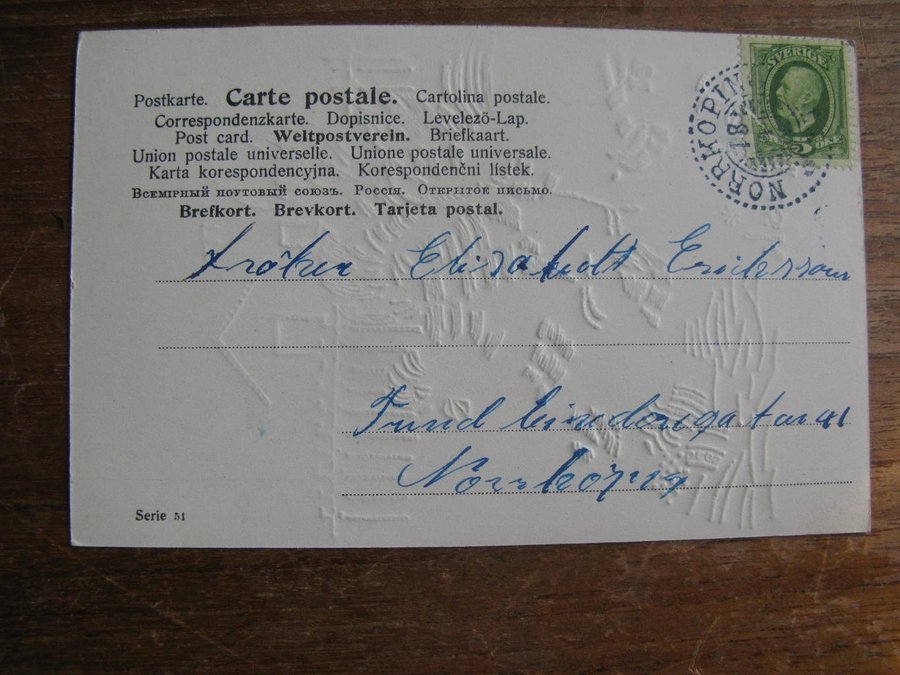 Postkarte. Carte postale. Cartolina postale.
Correspondenzkarte. Dopisnice. Levelező-Lap.
Post card. Weltpostverein. Briefkaart.
Union postale universelle. Unione postale universale.
Karta korespondencyjna. Korespondenční lístek.
Всемірный почтовый союзъ. Россія. Открытое письмо.
Brefkort. Brevkort. Tarjeta postal.
SVERIGE
5 ÖRE
NORRKÖPING
Fröken Elisabeth Eriksson
Norrköping
Serie 51